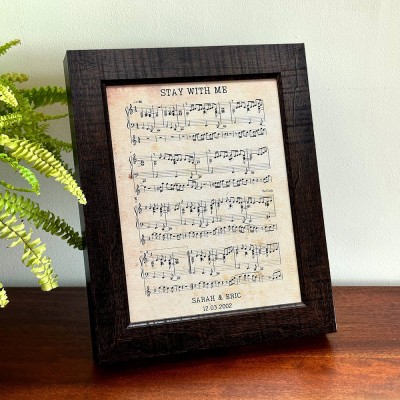 STAY WITH ME
SARAH & ERIC
12.03.2002